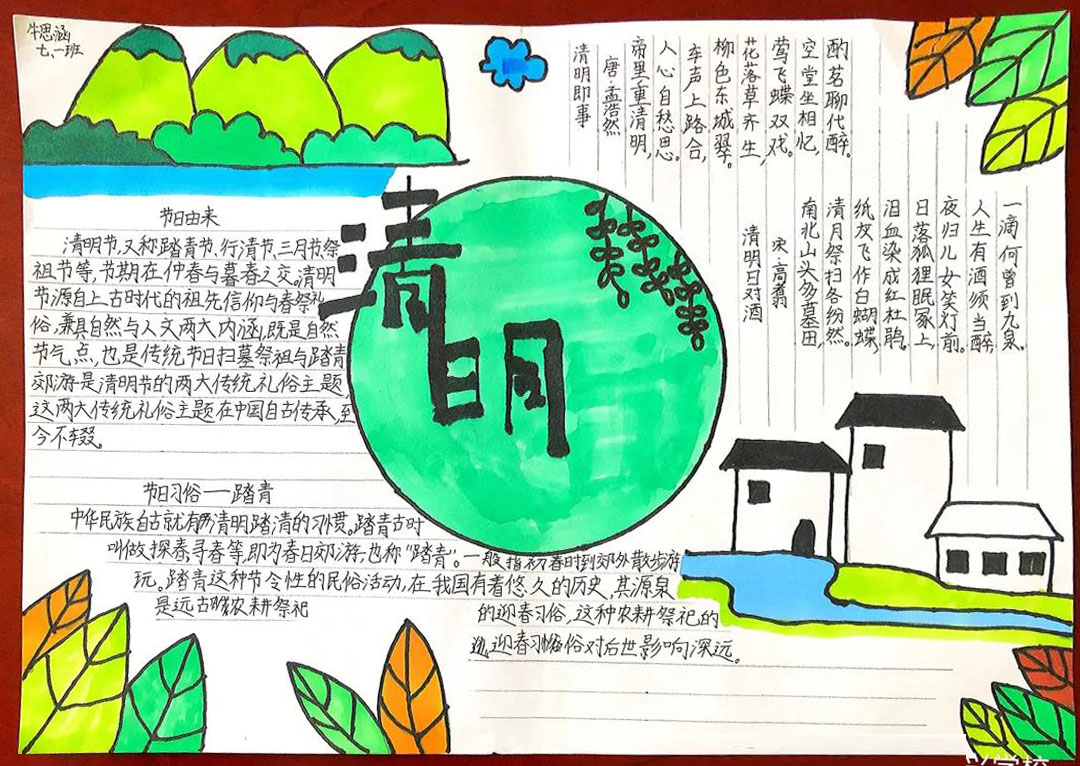 牛思涵
七.一班
清明
节日由来
清明节,又称踏青节、行清节、三月节、祭
祖节等,节期在仲春与暮春之交。清明
节源自上古时代的祖先信仰与春祭礼
俗,兼具自然与人文两大内涵,既是自然
节气点,也是传统节日扫墓祭祖与踏青
郊游是清明节的两大传统礼俗主题,
这两大传统礼俗主题在中国自古传承,至
今不辍。
节日习俗——踏青
中华民族自古就有清明踏清的习惯。踏青古时
叫做探春、寻春等,即为春日郊游,也称"踏青"。一般指初春时到郊外散步游
玩。踏青这种节令性的民俗活动,在我国有着悠久的历史,其源泉
是远古农耕祭祀
的迎春习俗,这种农耕祭祀的
迎春习俗对后世影响深远。
清明即事
唐·孟浩然
帝里重清明,
人心自愁思。
车声上路合,
柳色东城翠。
花落草齐生,
莺飞蝶双戏。
空堂坐相忆,
酌茗聊代醉。
清明日对酒
宋·高翥
南北山头多墓田,
清月祭扫各纷然。
纸灰飞作白蝴蝶,
泪血染成红杜鹃。
日落狐狸眠冢上,
夜归儿女笑灯前。
人生有酒须当醉,
一滴何曾到九泉。